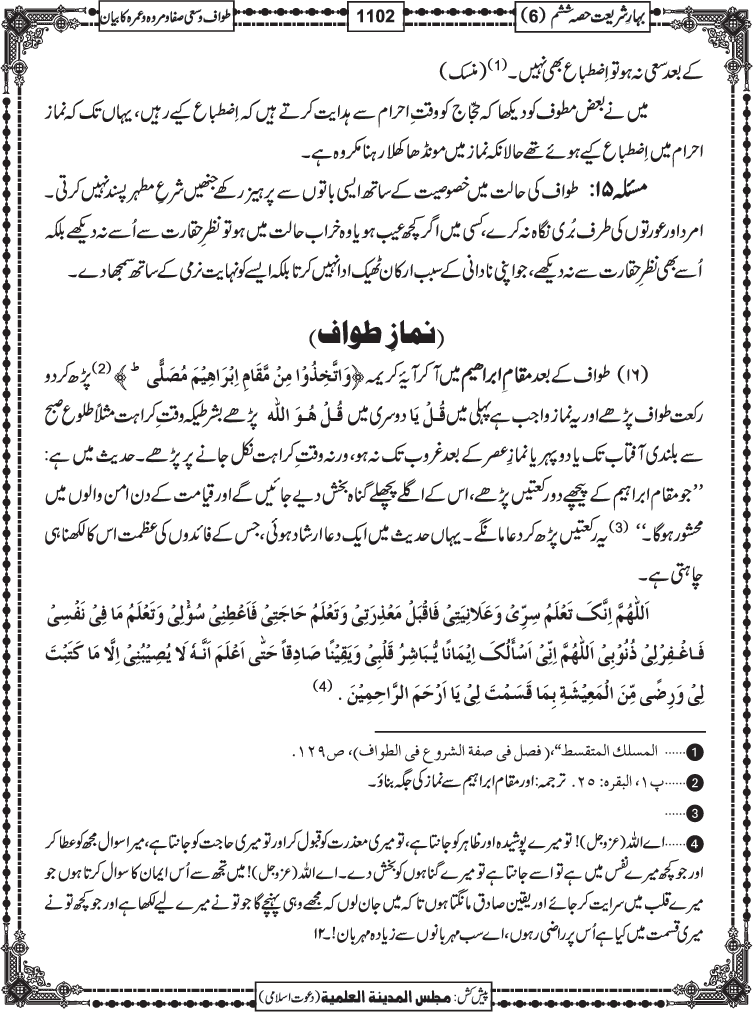 بہارِ شریعت حصہ ششم (6)
1102
طواف و سعی صفا و مروہ و عمرہ کا بیان
کے بعد سعی نہ ہو تو اِضطباع بھی نہیں۔ (1) (منسک)
میں نے بعض مطوف کو دیکھا کہ حجّاج کو وقتِ احرام سے ہدایت کرتے ہیں کہ اِضطباع کیے رہیں، یہاں تک کہ نماز
احرام میں اِضطباع کیے ہوئے تھے حالانکہ نماز میں مونڈھا کھلا رہنا مکروہ ہے۔
مسئلہ ۱۵: طواف کی حالت میں خصوصیت کے ساتھ ایسی باتوں سے پرہیز رکھے جنھیں شرع مطہر پسند نہیں کرتی۔
امرد اور عورتوں کی طرف بُری نگاہ نہ کرے، کسی میں اگر کچھ عیب ہو یا وہ خراب حالت میں ہو تو نظرِ حقارت سے اُسے نہ دیکھے بلکہ
اُسے بھی نظرِ حقارت سے نہ دیکھے، جو اپنی نادانی کے سبب ارکان ٹھیک ادا نہیں کرتا بلکہ ایسے کو نہایت نرمی کے ساتھ سمجھا دے۔
(نمازِ طواف)
(۱۶) طواف کے بعد مقامِ ابراھیم میں آ کر آیۂ کریمہ ﴿وَاتَّخِذُوْا مِنْ مَّقَامِ اِبْرَاھِیْمَ مُصَلًّی ط﴾ (2) پڑھ کر دو
رکعت طواف پڑھے اور یہ نماز واجب ہے پہلی میں قُلْ یَا دوسری میں قُلْ ھُوَ اللہ پڑھے بشرطیکہ وقت کراہت مثلاً طلوع صبح
سے بلندی آفتاب تک یا دوپہر یا نماز عصر کے بعد غروب تک نہ ہو، ورنہ وقت کراہت نکل جانے پر پڑھے۔ حدیث میں ہے:
’’جو مقام ابراہیم کے پیچھے دو رکعتیں پڑھے، اس کے اگلے پچھلے گناہ بخش دیے جائیں گے اور قیامت کے دن امن والوں میں
محشور ہوگا۔‘‘ (3) یہ رکعتیں پڑھ کر دعا مانگے۔ یہاں حدیث میں ایک دعا ارشاد ہوئی، جس کے فائدوں کی عظمت اس کا لکھنا ہی
چاہتی ہے۔
اَللّٰھُمَّ اِنَّکَ تَعْلَمُ سِرِّیْ وَعَلَانِیَتِیْ فَاقْبَلْ مَعْذِرَتِیْ وَتَعْلَمُ حَاجَتِیْ فَاَعْطِنِیْ سُؤْلِیْ وَتَعْلَمُ مَا فِیْ نَفْسِیْ
فَاغْفِرْلِیْ ذُنُوْبِیْ اَللّٰھُمَّ اِنِّیْ اَسْأَلُکَ اِیْمَانًا یُّبَاشِرُ قَلْبِیْ وَیَقِیْنًا صَادِقاً حَتّٰی اَعْلَمَ اَنَّہٗ لَا یُصِیْبُنِیْ اِلَّا مَا کَتَبْتَ
لِیْ وَرِضًی مِّنَ الْمَعِیْشَۃِ بِمَا قَسَمْتَ لِیْ یَا اَرْحَمَ الرَّاحِمِیْنَ . (4)
1 ...... المسلك المتقسط“،( فصل فی صفة الشروع فی الطواف)، ص۱۲۹.
2 ......پ۱، البقرہ: ۲۵. ترجمہ: اور مقام ابراہیم سے نماز کی جگہ بناؤ۔
3 ......
4 ......اے اللہ (عزوجل)! تو میرے پوشیدہ اور ظاہر کو جانتا ہے، تو میری معذرت کو قبول کر اور تو میری حاجت کو جانتا ہے، میرا سوال مجھ کو عطا کر
اور جو کچھ میرے نفس میں ہے تو اسے جانتا ہے تو میرے گناہوں کو بخش دے۔ اے اللہ (عزوجل)! میں تجھ سے اُس ایمان کا سوال کرتا ہوں جو
میرے قلب میں سرایت کر جائے اور یقین صادق مانگتا ہوں تاکہ میں جان لوں کہ مجھے وہی پہنچے گا جو تو نے میرے لیے لکھا ہے اور جو کچھ تو نے
میری قسمت میں کیا ہے اُس پر راضی رہوں، اے سب مہربانوں سے زیادہ مہربان!۔۱۲
پیش کش: مجلس المدینة العلمیة (دعوت اسلامی)